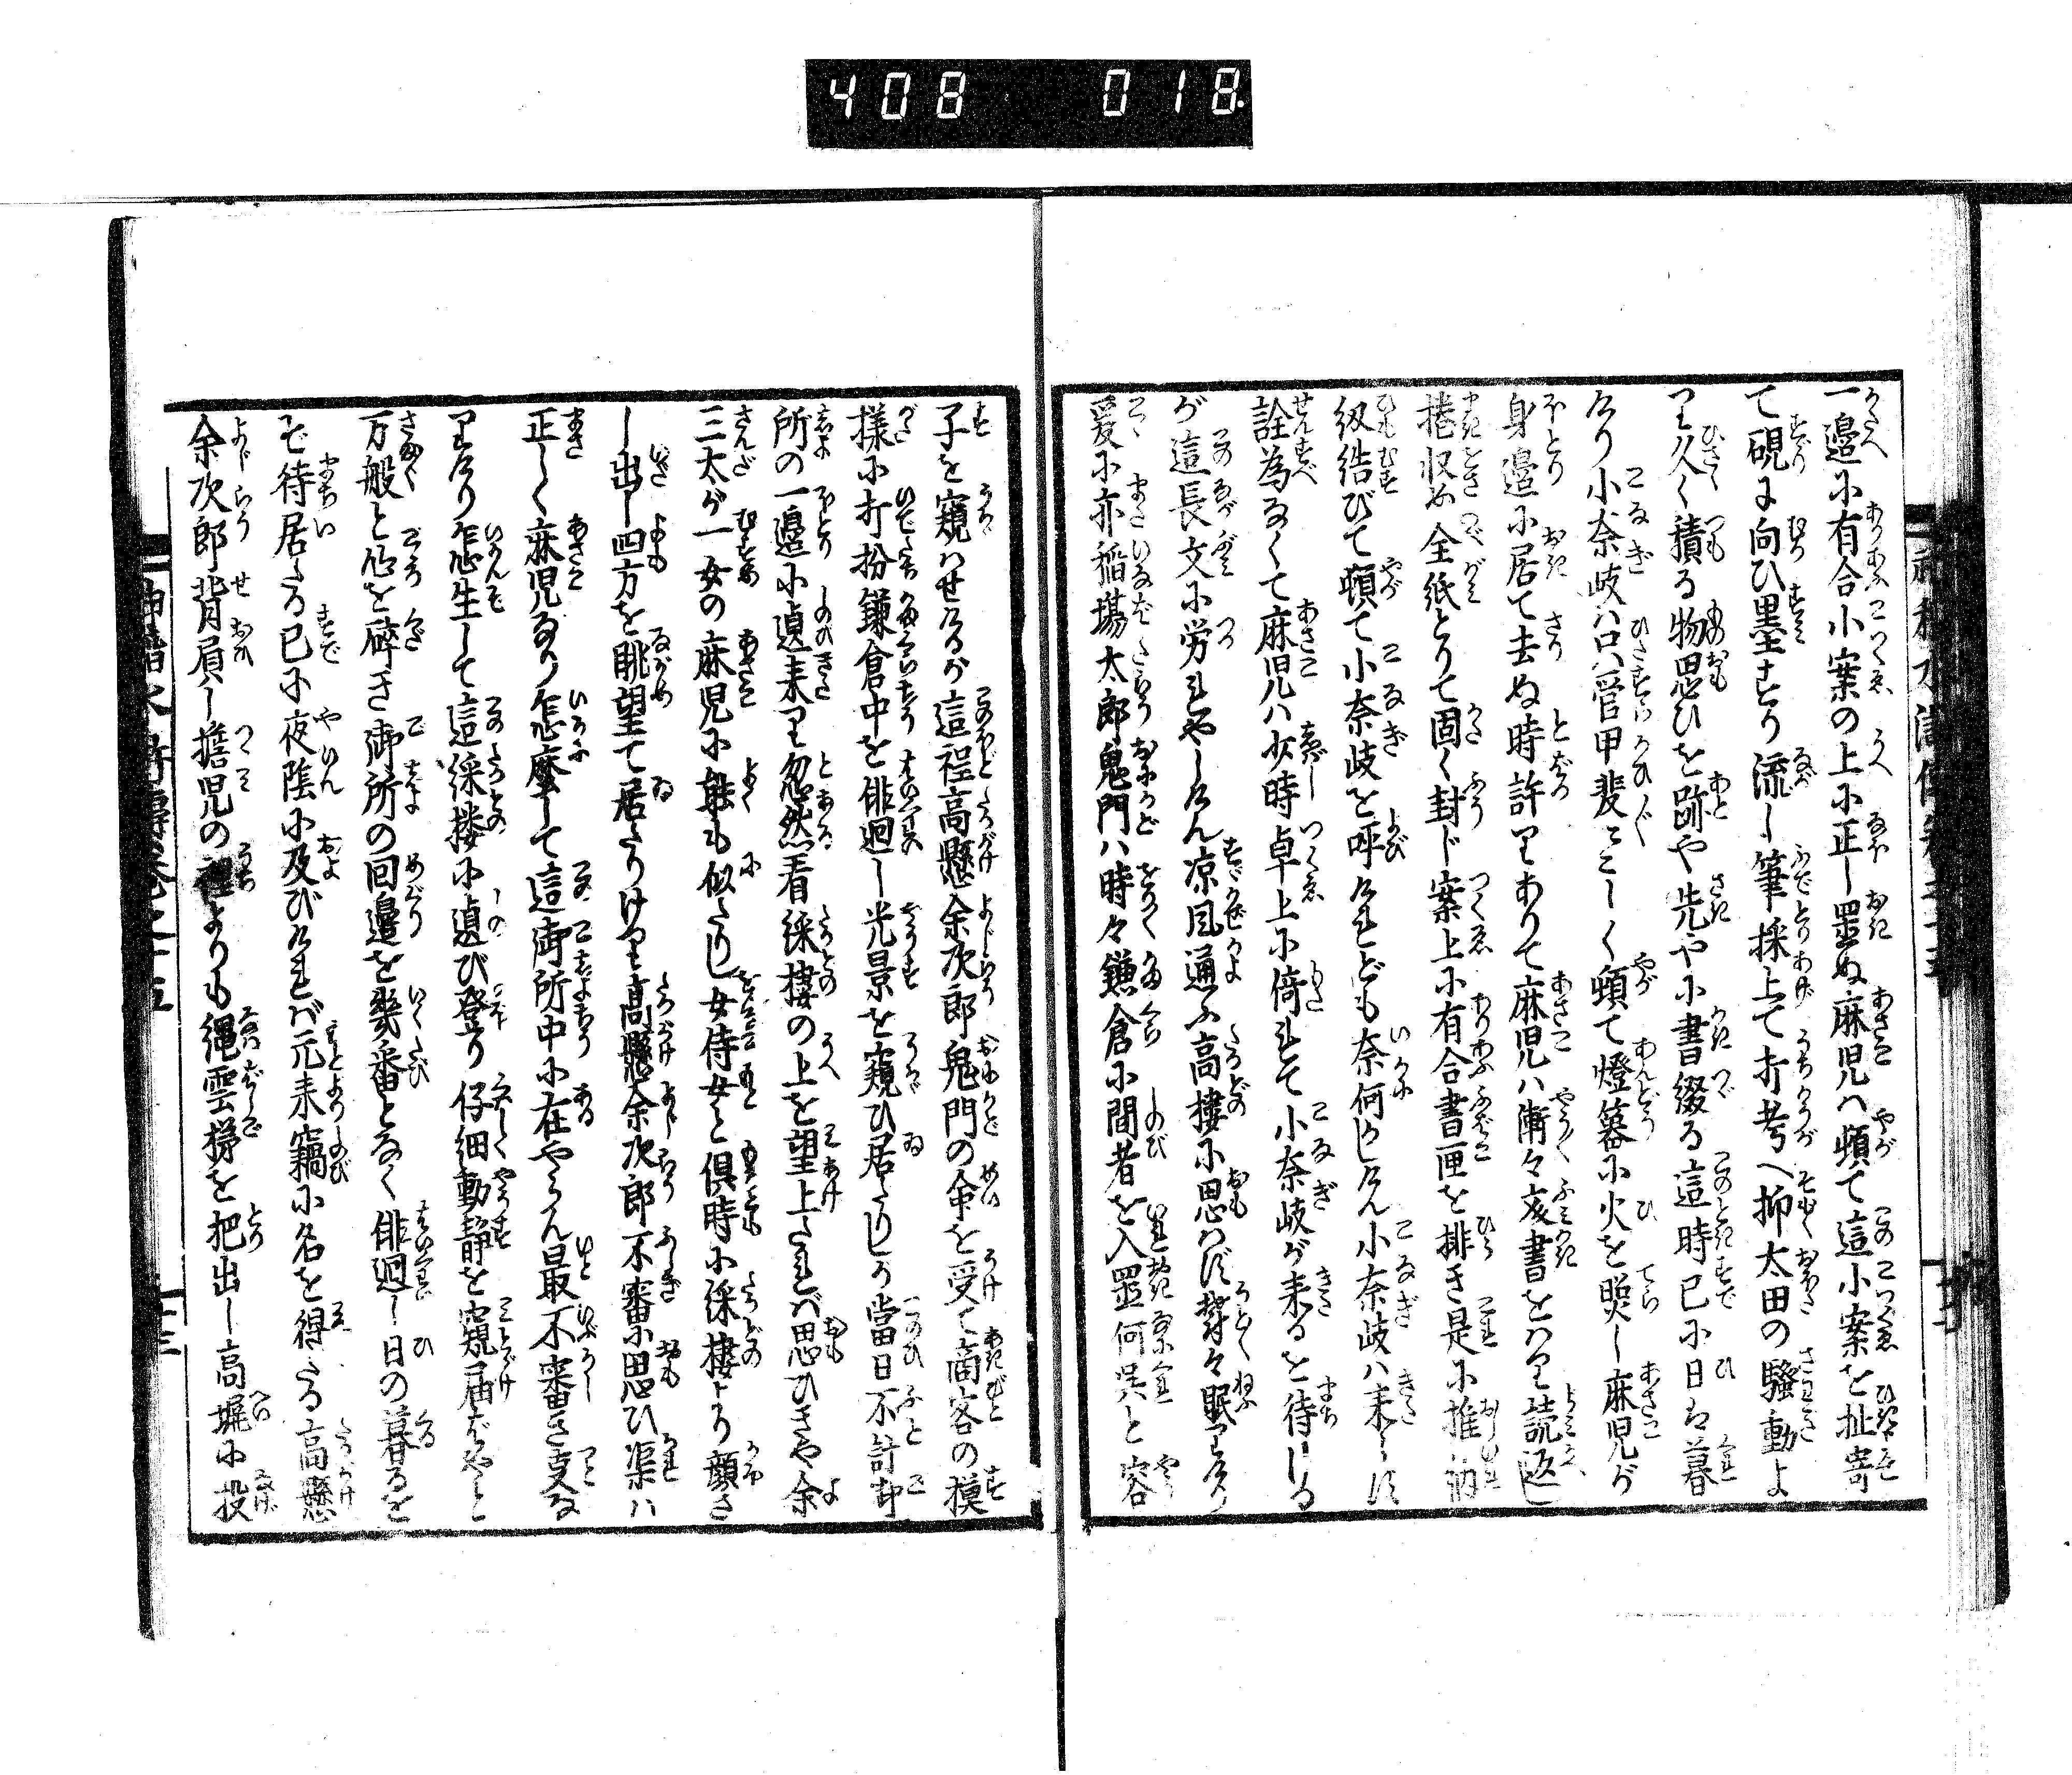 408 018
一邉に有合小案の上に正し置ぬ麻児ハ頓て這小案を扯寄
て硯に向ひ墨すり流し筆採上て打考へ抑太田の騒動よ
り久く積る物思ひを跡や先やに書綴る這時已に日は暮
けり小奈岐ハ只管甲斐〻〻しく頓て燈篝に火を照し麻児が
身邉に居て去ぬ時許りありて麻児ハ漸々文書をはり読返し
捲収め全紙とりて固く封じ案上に有合書匣を排き是に推納
紐結びて頓て小奈岐を呼けれども奈何しけん小奈岐ハ来らず
詮為なくて麻児ハ少時卓上に倚れて小奈岐が来るを待ける
が這長文に労れやしけん凉風通ふ高樓に思はず齁々眠りけり
爰に亦稲場太郎鬼門ハ時々鎌倉に間者を入置何呉と容
子を窺はせけるが這程高懸余次郎鬼門の命を受て商客の模
様に打扮鎌倉中を徘廻し光景を窺ひ居たりしが當日不計御
所の一邉に辿来り忽然看綵樓の上を望上たれば思ひきや余
三太が一女の麻児に能も似たりし女侍女と倶時に綵樓より顔さ
し出し四方を眺望て居たりけり高懸余次郎不審に思ひ渠ハ
正しく麻児なり怎麼して這御所中に在やらん最不審き支な
りけり怎生して這綵楼に辿び登り仔細動静を窺届ばやと
万般と心を碎き御所の回邉を幾番となく徘廻し日の暮るを
ぞ待居たる已に夜陰に及びければ元来竊に名を得たる高懸
余次郎背負し擔児の裡よりも縄雲梯を把出し高塀に投